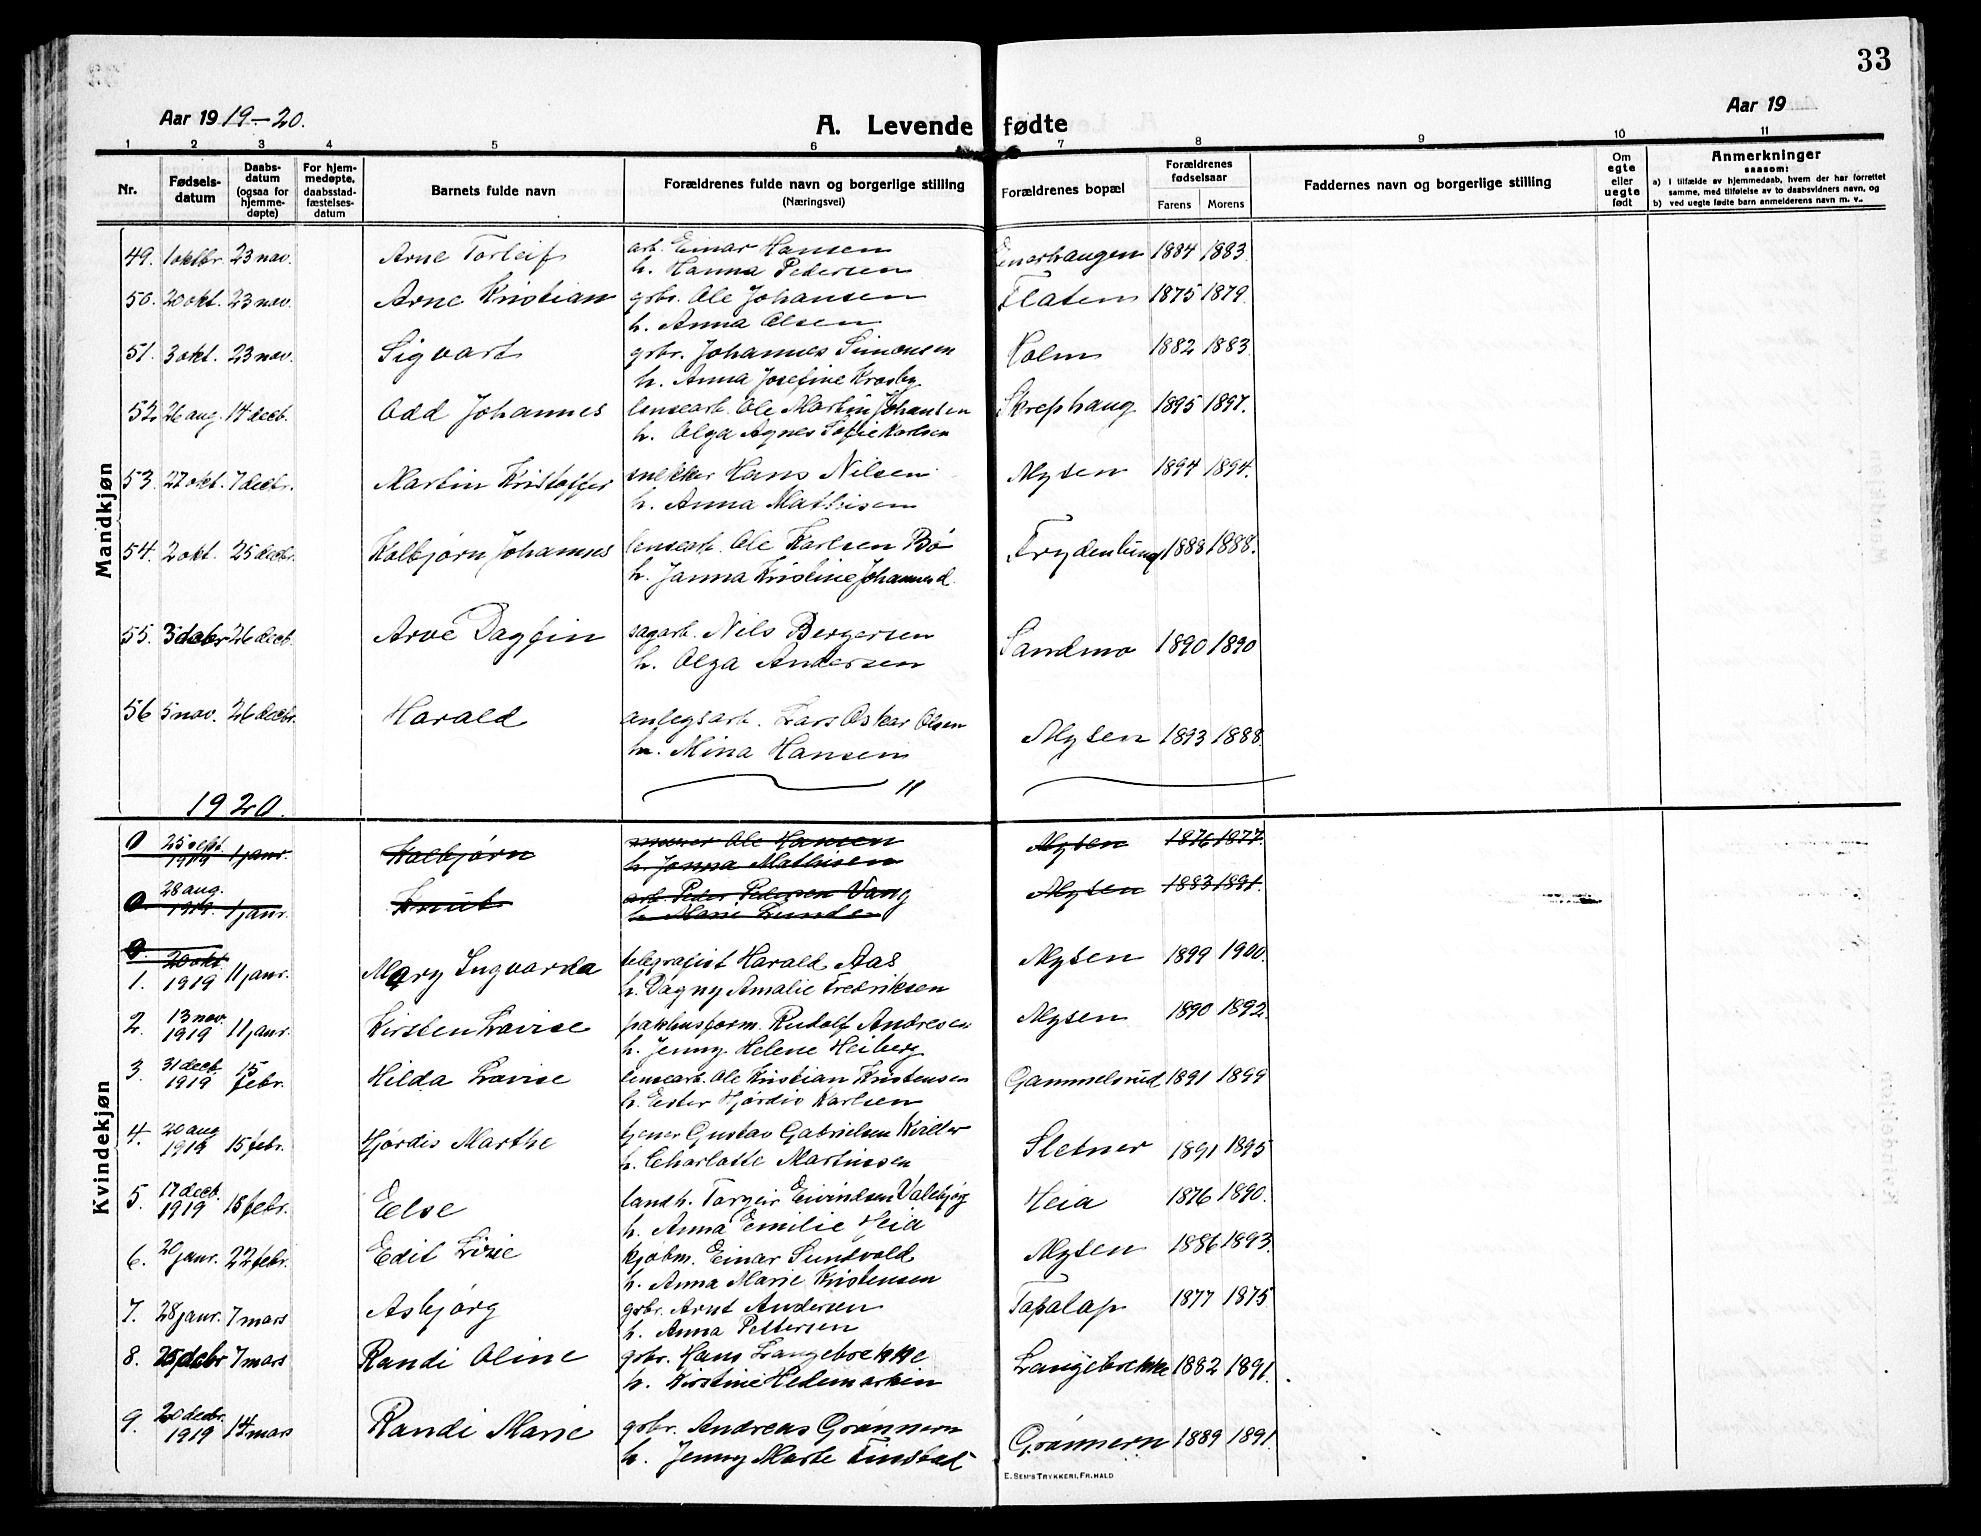 33
Aar 1919-20.
A. Levende fødte
Aar 19
1 2 3 4 5 6 7 8 9 10 11
Nr.
Fødsels-
datum
Daabs-
datum
(ogsaa for
hjemme-
døpte)
For hjem-
medøpte,
daabsstad-
fæstelses-
datum
Barnets fulde navn
Forældrenes fulde navn og borgerlige stilling
(Næringsvei)
Forældrenes bopæl
Forældrenes
fødselsaar
Farens Morens
Faddernes navn og borgerlige stilling
Om
egte
eller
uegte
født
Anmerkninger
saasom:
a) I tilfælde av hjemmedaab, hvem der har forrettet
samme, med tilføielse av to daabsvidners navn, og
b) ved uegte fødte barn anmelderens navn m. v..
Mandkjøn
49. 1 oktbr. 23 nov. Arne Torleif arb. Einar Hansen Einerhaugen 1884 1883.
h. Hanna Pedersen
50. 20 okt. 23 nov. Arne Kristian grbr. Ole Johansen Flaten 1875 1879.
h. Anna Olsen
51. 3 okt. 23 nov. Sigvart grbr. Johannes Simonsen Holm 1882 1883.
h. Anna Josefine Krosby.
52. 26 aug. 14 decb. Odd Johannes lensearb. Ole Martin Johansen Skrephaug 1895 1897.
h. Olga Agnes Sofie Karlsen
53. 27 okt. 7 decbr. Martin Kristoffer snekker Hans Nilsen Mysen 1894 1894.
h. Anna Mathisen
54. 2 okt. 25 decbr. Kolbjørn Johannes lensearb. Ole Karlsen Bö Frydenlund 1888 1888.
h. Janna Kristine Johannesd.
55. 3 decbr 26 decb. Arve Dagfin sagarb. Nils Bergersen Sandmo 1890 1890
h. Olga Andersen
56 5 nov. 26 decbr. Harald anlegsarb. Lars Oskar Olsen Mysen 1893 1888.
h. Mina Hansen
1920.
Kvindekjøn
0 25 sept. 1919 1 janr. Kolbjørn murer Ole Hansen Mysen 1876 1877.
h. Janna Mathisen
0. 28 aug. 1919. 1 janr. Knut arb. Peder Pedersen Vang Mysen 1883 1891.
h. Marie Lunde
1. 20 okt. 1919 11 janr. Mary Ingvarda telegrafist Harald Aas Mysen 1899 1900.
h. Dagny Amalie Fredriksen
2. 13 nov. 1919 11 janr. Kirsten Lovise pakhusform. Rudolf Andresen Mysen 1890 1892.
h. Jenny Helene Heiberg
3. 31 decb. 1919 15 febr. Hilda Lovise lensearb. Ole Kristian Kristensen Gammelsrud 1891 1899
h. Ester Hjørdis Karlsen
4. 20 aug 1919 15 febr. Hjørdis Marthe tjener Gustav Gabrielsen Sletner 1891 1895
h. Charlotte Martinsen
5. 17 decb. 1919 15 febr. Else landh. Torgeir Eivindsen Valebjørg Heia 1876 1890.
h. Anna Emilie Heia
6. 20 janr. 22 febr. Edit Lizie kjøbm. Einar Sundvold Mysen 1886 1893.
h. Anna Marie Kristensen
7. 28 janr. 7 mars Asbjørg grbr. Arnt Andersen Tapalap 1877 1875
h. Anna Pettersen
8. 25 decbr 7 mars Randi Oline grbr. Hans Langebrekke Langebrekke 1882 1891.
h. Kirstine Hedemarken
9. 20 decbr. 1919 14 mars Randi Marie grbr. Andreas Grønnern Grønnern 1889 1891
h. Jenny Marte Finstad
E. SEM'S TRYKKERI, FR.HALD